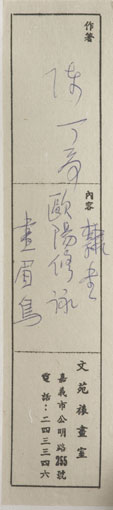 作者
陳丁奇
內容
隸書
歐陽修詠
畫眉鳥
文苑裱畫室
嘉義市公明路255號
電話：二四三三四六